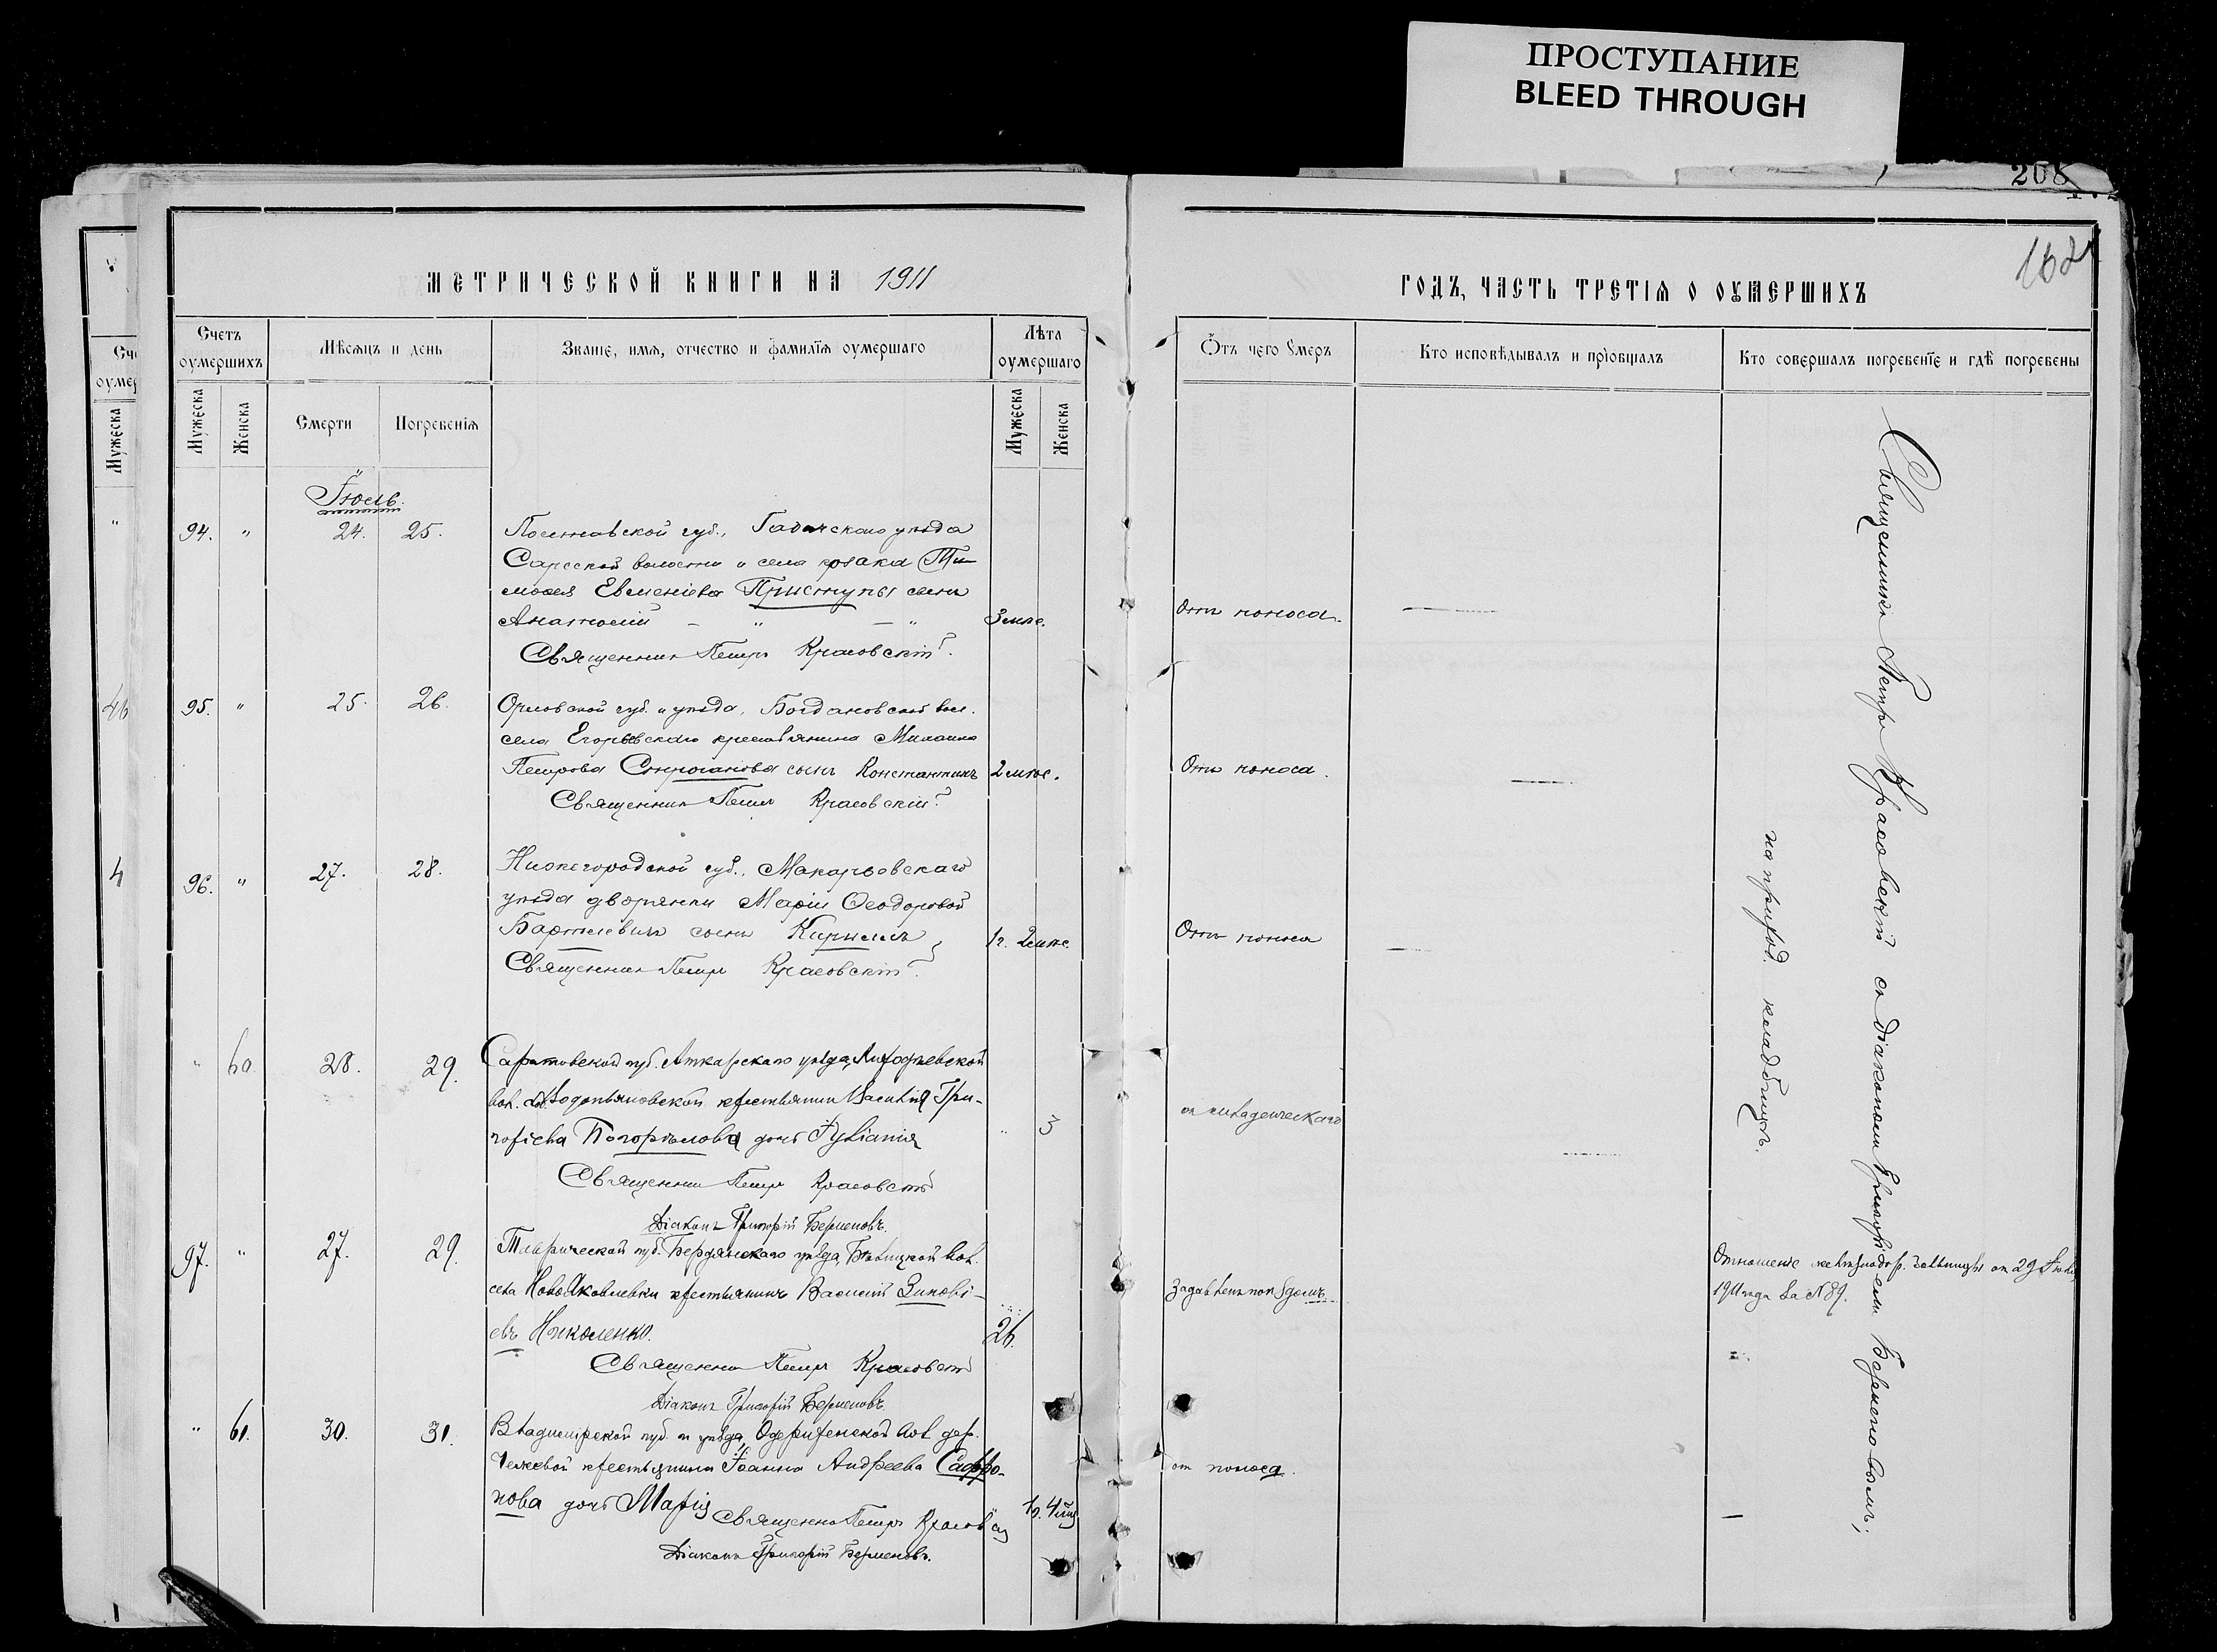 ПРОСТУПАНИЕ
BLEED THROUGH
208
162
МЕТРИЧЕСКОЙ КНИГИ НА 1911
ГОДЪ, ЧАСТЬ ТРЕТІЯ О ОУМЕРШИХЪ
Счетъ оумершихъ
Мѣсяцъ и день
Званіе, имя, отчество и фамилія оумершаго
Лѣта оумершаго
Отъ чего умеръ
Кто исповѣдывалъ и пріобщалъ
Кто совершалъ погребеніе и гдѣ погребены
Мужеска
Женска
Смерти
Погребенія
Мужеска
Женска
Іюль.
94. " 24. 25. Полтавской губ., Гадячскаго уѣзда
Сарской волости и села козака Ти-
моѳея Евменіева Приступы сынъ
Анатолій — " — " 3 мѣс. Отъ поноса.
Священникъ Петръ Красовскій.
95. " 25. 26. Орловской губ. и уѣзда, Богдановской вол.
села Егорьевскаго крестьянина Михаила
Петрова Строганова сынъ Константинъ 2 мѣс. Отъ поноса.
Священникъ Петръ Красовскій.
96. " 27. 28. Нижегородской губ., Макарьевскаго
уѣзда дворянки Маріи Ѳеодоровой
Бартилевичъ сынъ Кириллъ 1 г. 2 мѣс. Отъ поноса
Священникъ Петръ Красовскій.
" 60. 28. 29. Саратовской губ. Аткарскаго уѣзда,
вол. Водопьяновской крестьянина Василія Гри-
горіева Погорѣлова дочь Іуліанія " 3
Священникъ Петръ Красовскій
Діаконъ Григорій Берменовъ.
97. " 27. 29. Таврической губ. Бердянскаго уѣзда, вол.
села НовоЯковлевки крестьянинъ Василій Зиновь-
евъ Николенко. 26. Задавленъ поѣздомъ.
Отношеніе от 29 Іюля
1911 года за № 89.
Священникъ Петръ Красовскій
Діаконъ Григорій Берменовъ.
" 61. 30. 31. Владимірской губ. и уѣзда, вол. дер.
крестьянина Іоанна Андреева Сафро-
нова дочь Марія 1 г. 4 мѣс от поноса.
Священникъ Петръ Красовскій
Діаконъ Григорій Берменовъ.
Священникъ Петръ Красовскій съ діакономъ Григоріемъ Берменовымъ;
на приход. кладбищѣ.